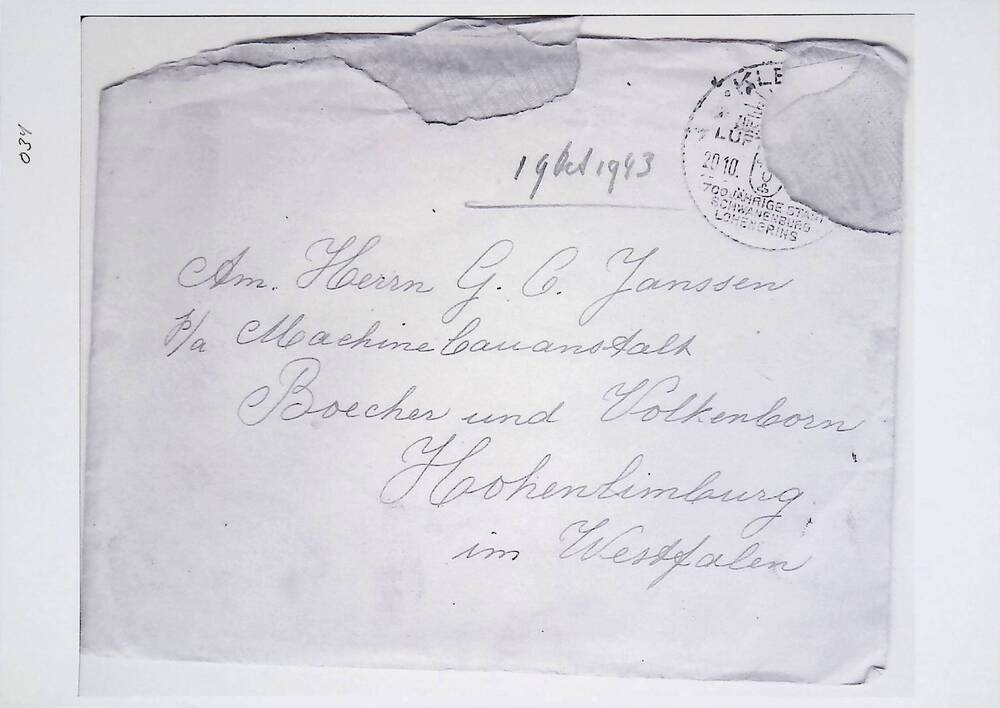 034
KLE
LUF
20.10.
700 JÄHRIGE STADT
SCHWANENBURG
LOHENGRINS
19 Oct 1943
Am. Herrn G. C. Janssen
p/a Machinebauanstalt
Boecher und Volkenborn
Hohenlimburg
im Westfalen